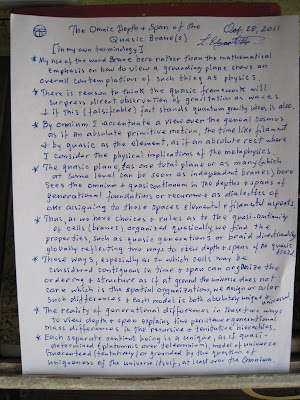 The Omnic Depth + Span of the
Quasic Brane(s)
Oct. 28, 2011
[in my own terminology]
* My use of the word Brane here rather than the mathematical
emphasis on how to view a grounding plane shows an
overall contemplation of such thing as physics.
* There is reason to think the quasic framework will
suppress direct observation of gravitation as waves
+ if this (falsifiable) fact stands quantum gravity ideas is also.
* By omnium I accentuate a view over the general cosmos
as if an absolute primitive motion, the time like filament
+ by quasic as the element, as if an absolute rest where
I consider the physical implications of the metaphysics.
* The quasic plane for one total plane or as many (which
at some level can be seen as independent branes) here
sees the omnium + quasicontinuum in the depths + spans of
generational simulations or recurrence as dialectics of
color assigning to those spaces elemental + filamental aspects
* Thus, as we have choices + rules as to the quasi-continuity
of cells (branes) organized quasically we find the
properties, such as quasic generations or braid directionality
globally reflecting two ways to view depth + span of the quasic
* These ways, especially as to which cells may be
considered contiguous in time + span can organize the
ordering + structure as if at ground the universe does not
care which is the spatial organization, we design or color
such differences + each model is both absolutely unique +
universal
* The reality of generational differences in these two ways
to view depth + span explains time persistence + generational
mass differences in the recursive + tentative hierarchies.
* Each separate sentient being is a unique, as if quasi-
determined (plutonimus over telerinium) model of universe
guaranteed (tentatively) or grounded by the question of
uniqueness of the universe itself, at least over the Omnium.